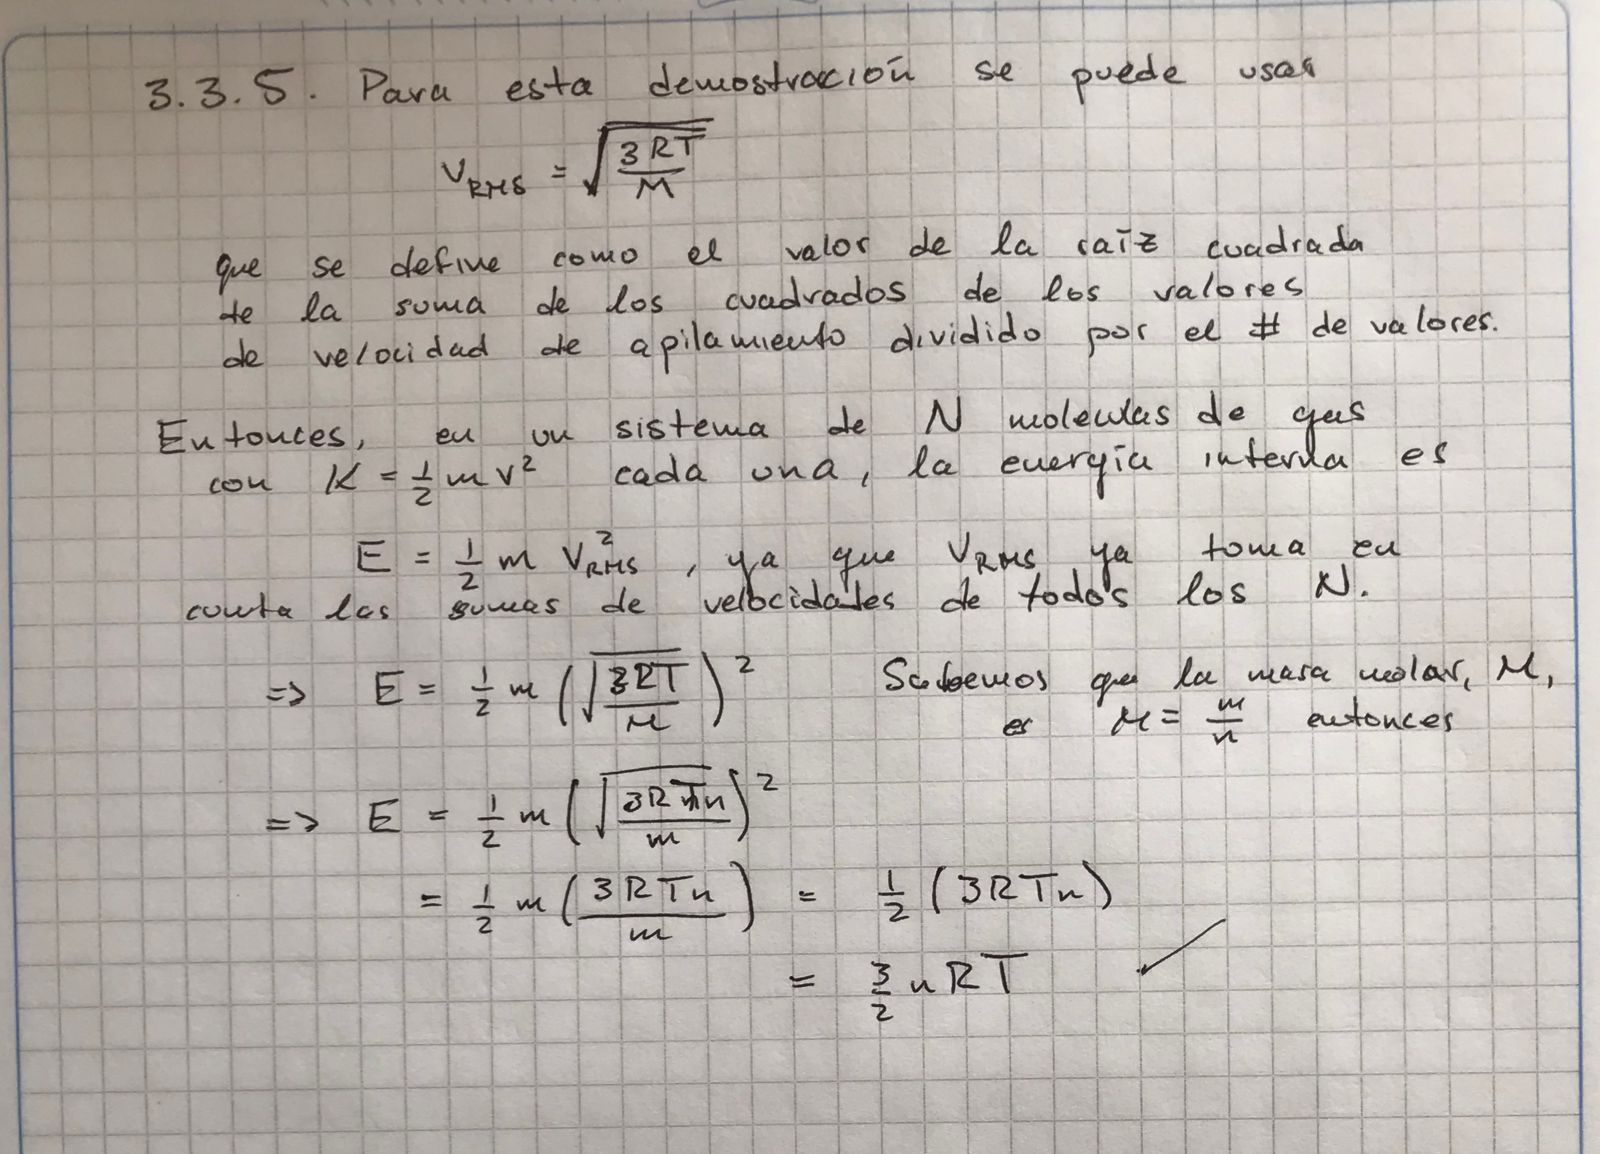 3.3.5. Para esta demostración se puede usar
V_RMS = √(3RT/M)
que se define como el valor de la raíz cuadrada
de la suma de los cuadrados de los valores
de velocidad de apilamiento dividido por el # de valores.
Entonces, en un sistema de N moleculas de gas
con K = 1/2 m v² cada una, la energía interna es
E = 1/2 m V_RMS², ya que V_RMS ya toma en
cuenta las sumas de velocidades de todos los N.
=> E = 1/2 m (√(3RT/M))² Sabemos que la masa molar, M,
es M = m/n entonces
=> E = 1/2 m (√(3RTn/m))²
= 1/2 m (3RTn/m) = 1/2 (3RTn)
= 3/2 nRT ✓